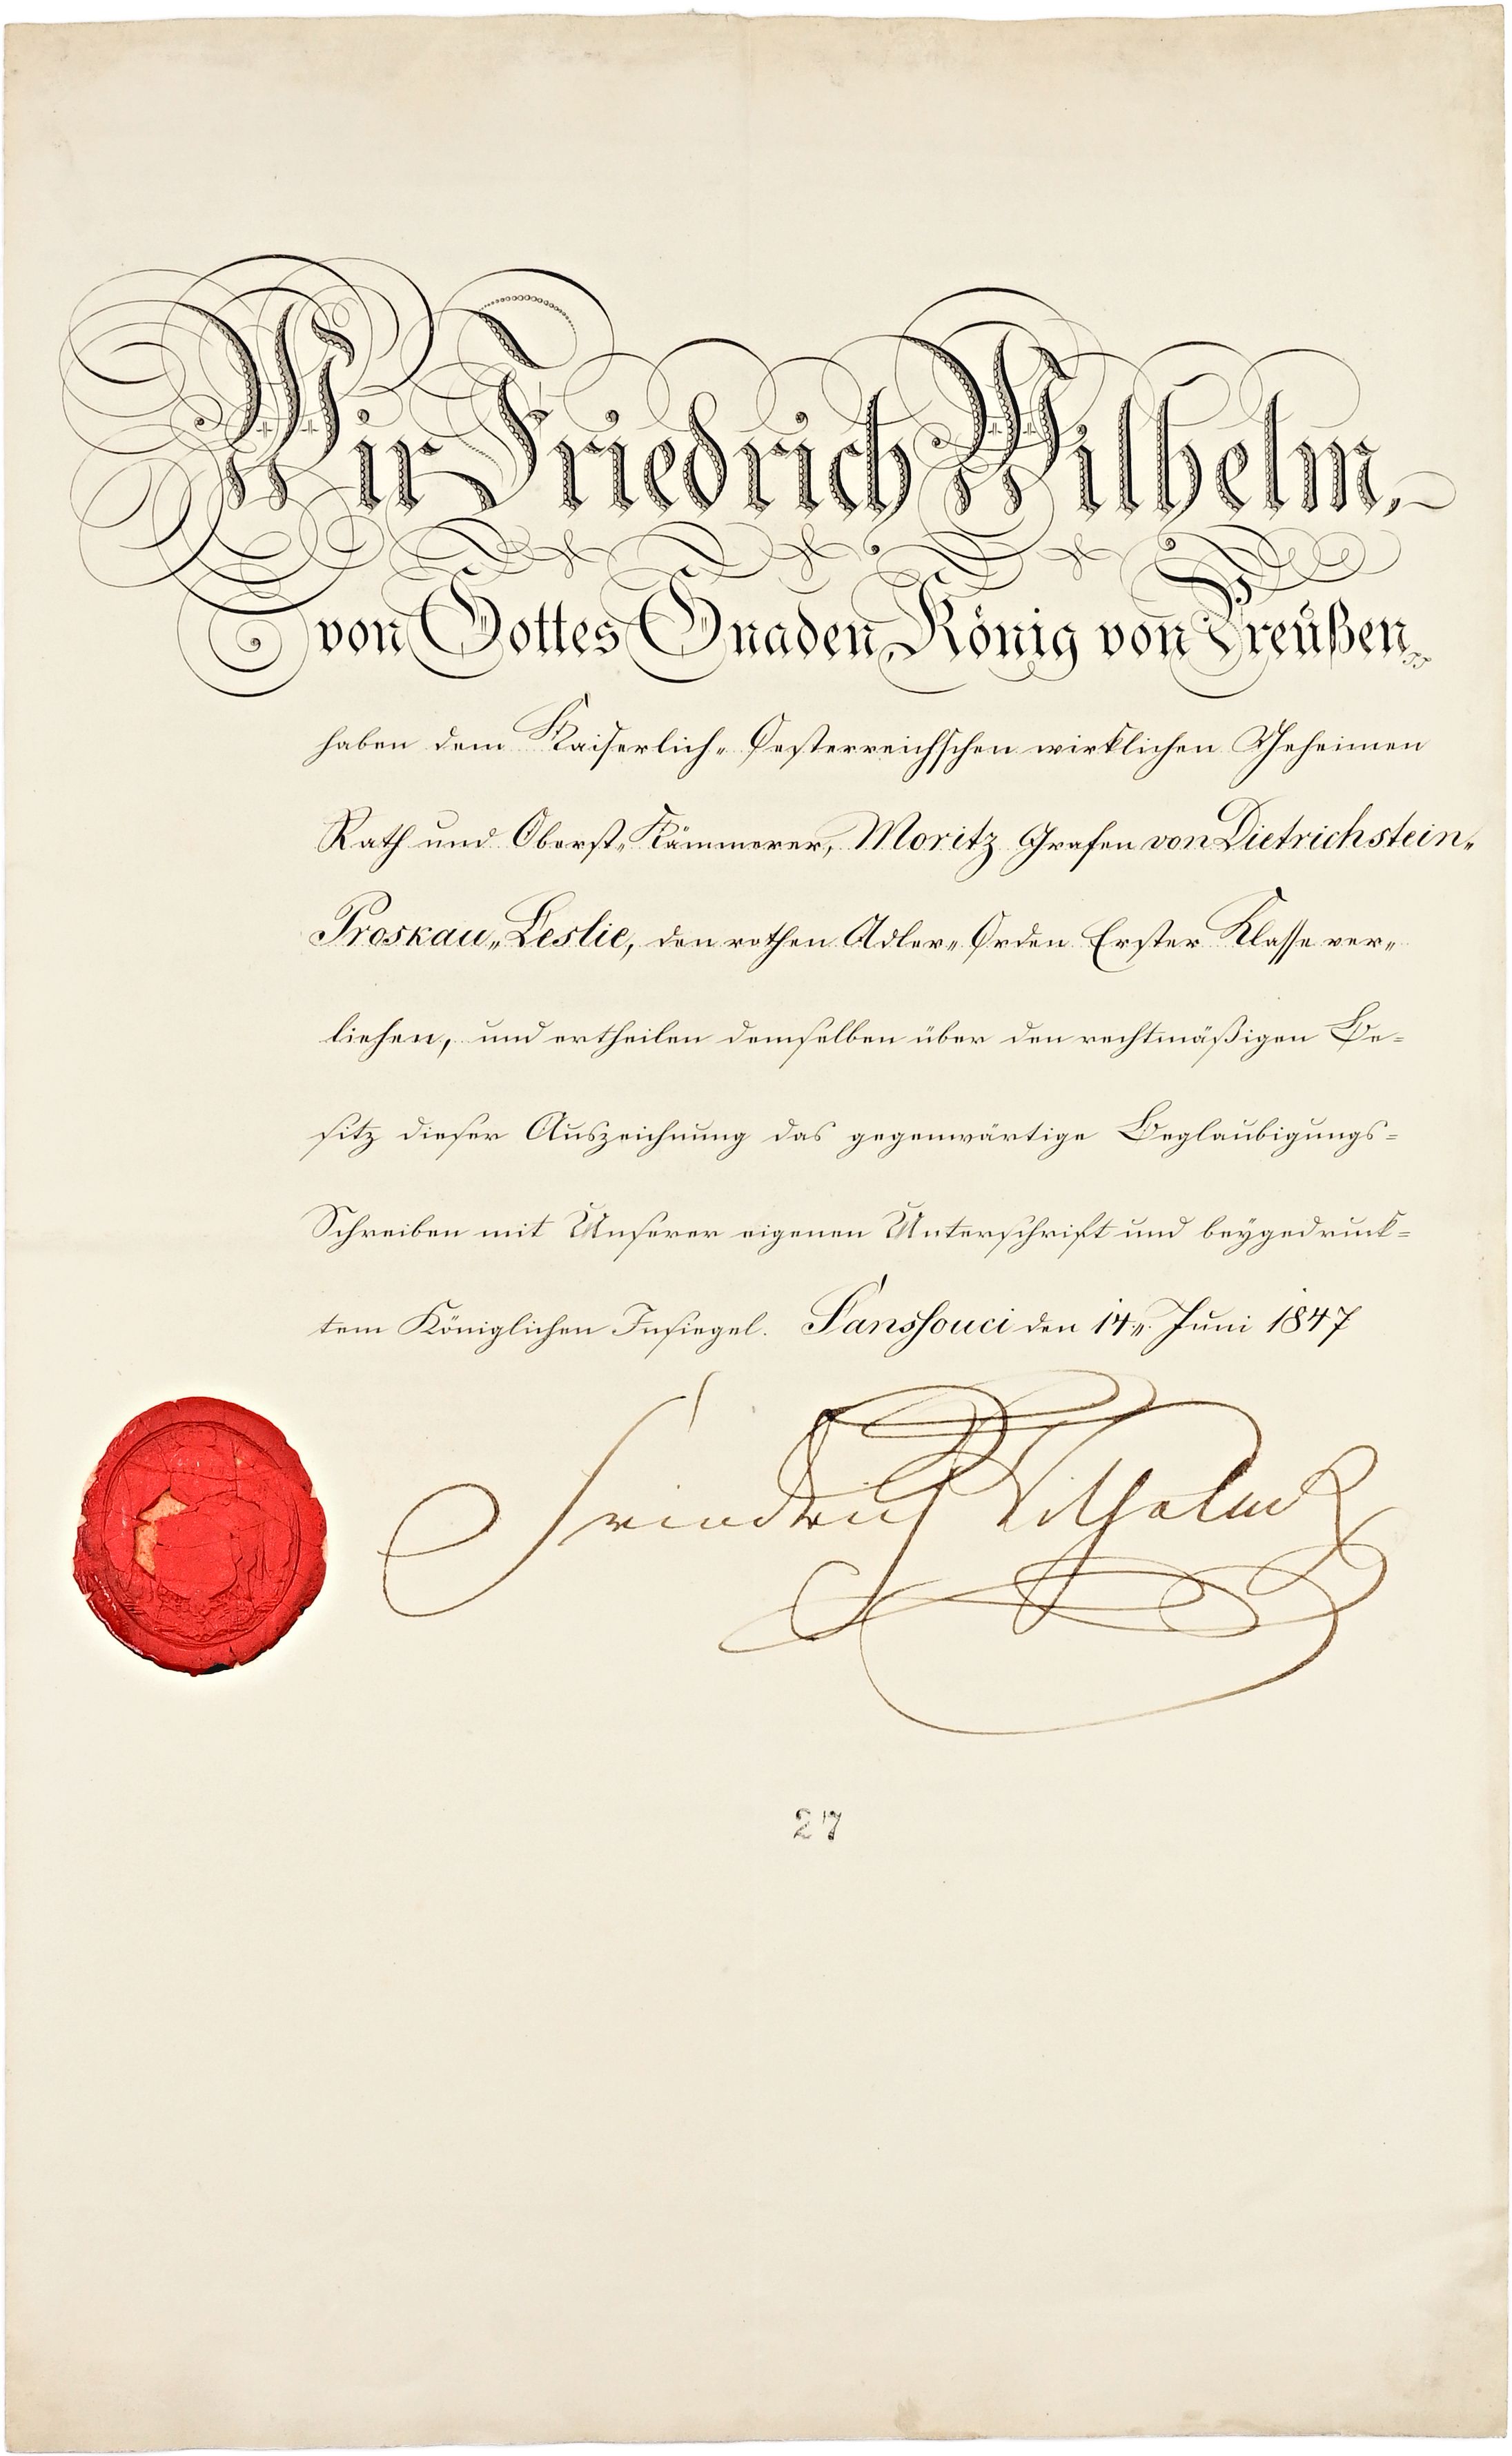 Wir Friedrich Wilhelm,
von Gottes Gnaden, König von Preußen
haben dem Kaiserlich-Oesterreichschen wirklichen Geheimen
Rath und Oberst-Kämmerer, Moritz Grafen von Dietrichstein-
Proskau-Leslie, den rothen Adler-Orden Erster Klasse ver-
liehen, und ertheilen demselben über den rechtmäßigen Be-
sitz dieser Auszeichnung das gegenwärtige Beglaubigungs-
Schreiben mit Unserer eigenen Unterschrift und beygedruck-
tem Königlichen Insiegel. Sanssouci den 14. Juni 1847
Friedrich Wilhelm
27